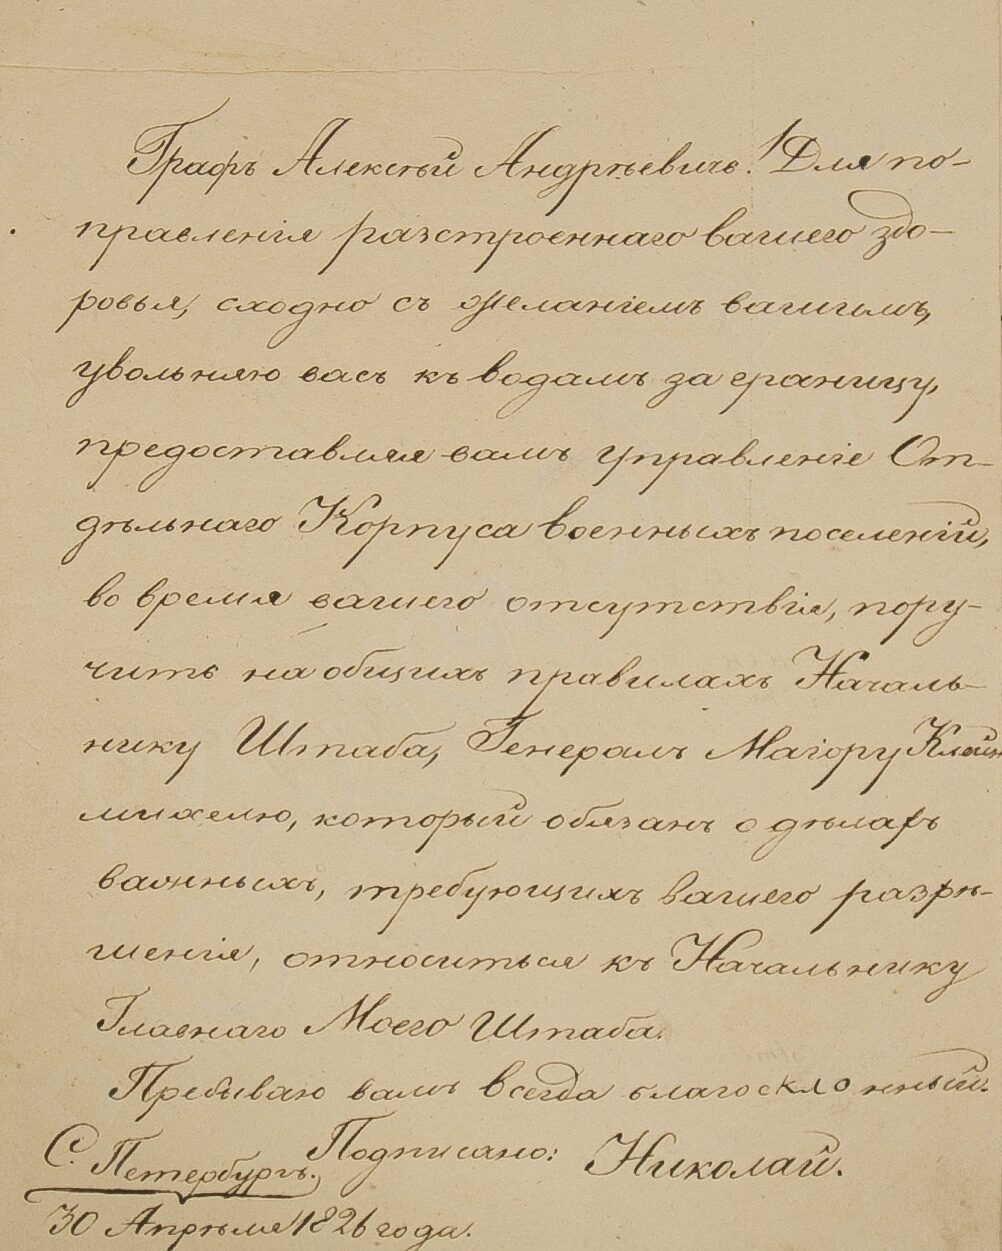 Графъ Алексѣй Андрѣевичь! Для по-
правленія разстроеннаго вашего здо-
ровья, сходно съ желаніемъ вашимъ,
увольняю васъ къ водамъ за границу,
предоставляя вамъ управленіе От-
дѣльнаго Корпуса военныхъ поселеній,
во время вашего отсутствія, пору-
чить на общихъ правилахъ Началь-
нику Штаба, Генералъ Маіору Клейн
михелю, который обязанъ о дѣлахъ
важныхъ, требующихъ вашего разрѣ-
шенія, относиться къ Начальнику
Главнаго Моего Штаба.
Пребываю вамъ всегда благосклонный.
Подписано: Николай.
С. Петербургъ.
30 Апрѣля 1826 года.